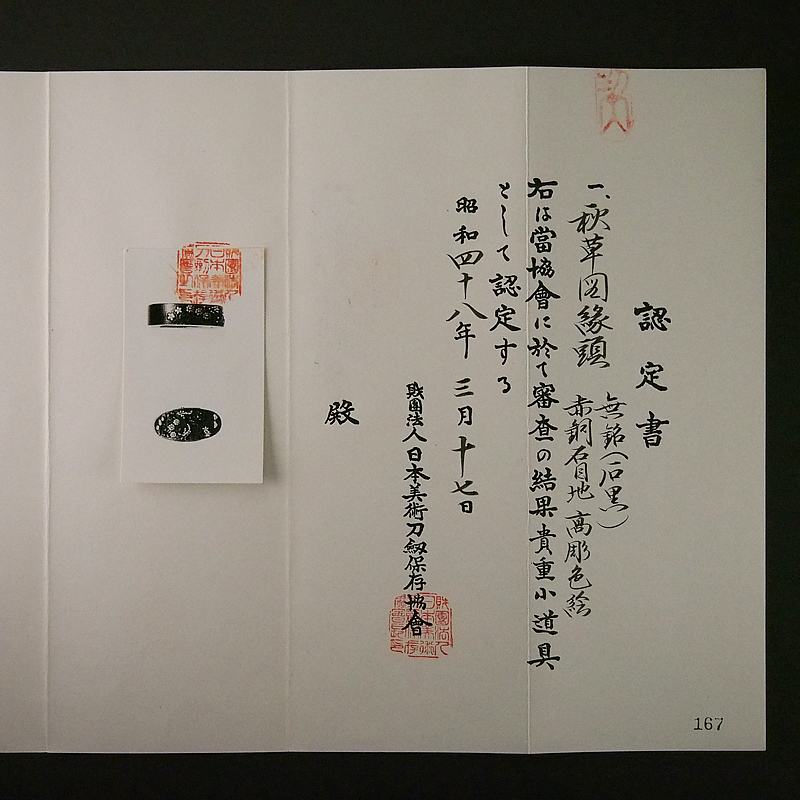 認定書
一、秋草図縁頭
無銘(石黒)
赤銅石目地高彫色絵
右は當協會に於て審査の結果貴重小道具
として認定する
昭和四十八年三月十七日
財團法人日本美術刀劔保存協會
殿
167